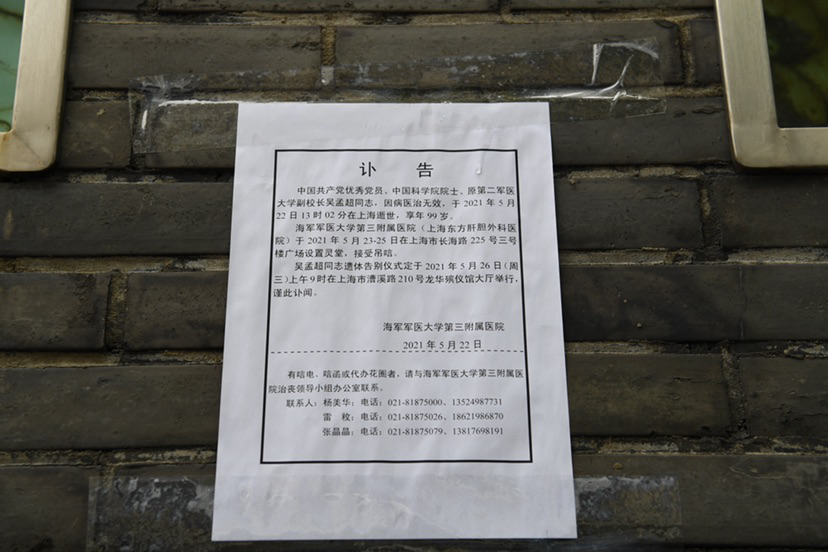 讣 告
中国共产党优秀党员、中国科学院院士、原第二军医
大学副校长吴孟超同志，因病医治无效，于 2021 年 5 月
22 日 13 时 02 分在上海逝世，享年 99 岁。
海军军医大学第三附属医院（上海东方肝胆外科医
院）于 2021 年 5 月 23-25 日在上海市长海路 225 号三号
楼广场设置灵堂，接受吊唁。
吴孟超同志遗体告别仪式定于 2021 年 5 月 26 日（周
三）上午 9 时在上海市漕溪路 210 号龙华殡仪馆大厅举行，
谨此讣闻。
海军军医大学第三附属医院
2021 年 5 月 22 日
有唁电、唁函或代办花圈者，请与海军军医大学第三附属医
院治丧领导小组办公室联系。
联系人：杨美华：电话：021-81875000、13524987731
雷 枚：电话：021-81875026、18621986870
张晶晶：电话：021-81875079、13817698191